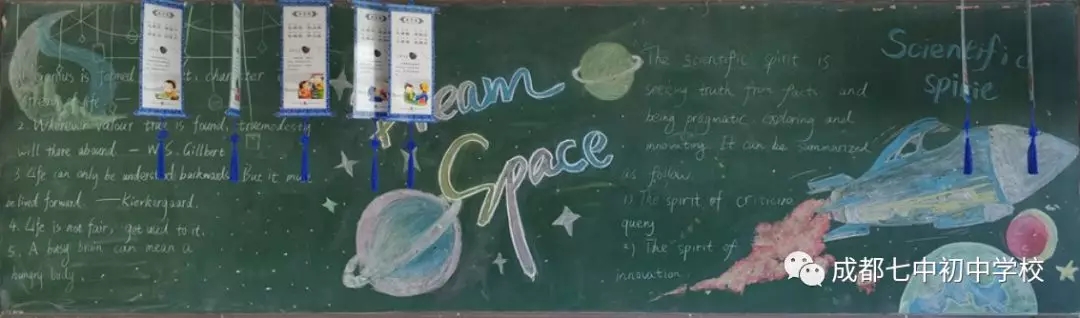 1. Genius is formed
stream of life.
2. Wherever valour true is found, true modesty
will there abound. — W.S. Gillbert
3. Life can only be understood backwards. But it must
be lived forward. — Kierkergaard.
4. Life is not fair, get used to it.
5. A busy brain can mean a
hungry body
Dream
Space
The scientific spirit is
seeking truth from facts and
being pragmatic exploring and
innovating. It can be summarized
as follow.
1) The spirit of criticing
query
2) The spirit of
innovation.
Scientific
spirie
成都七中初中学校